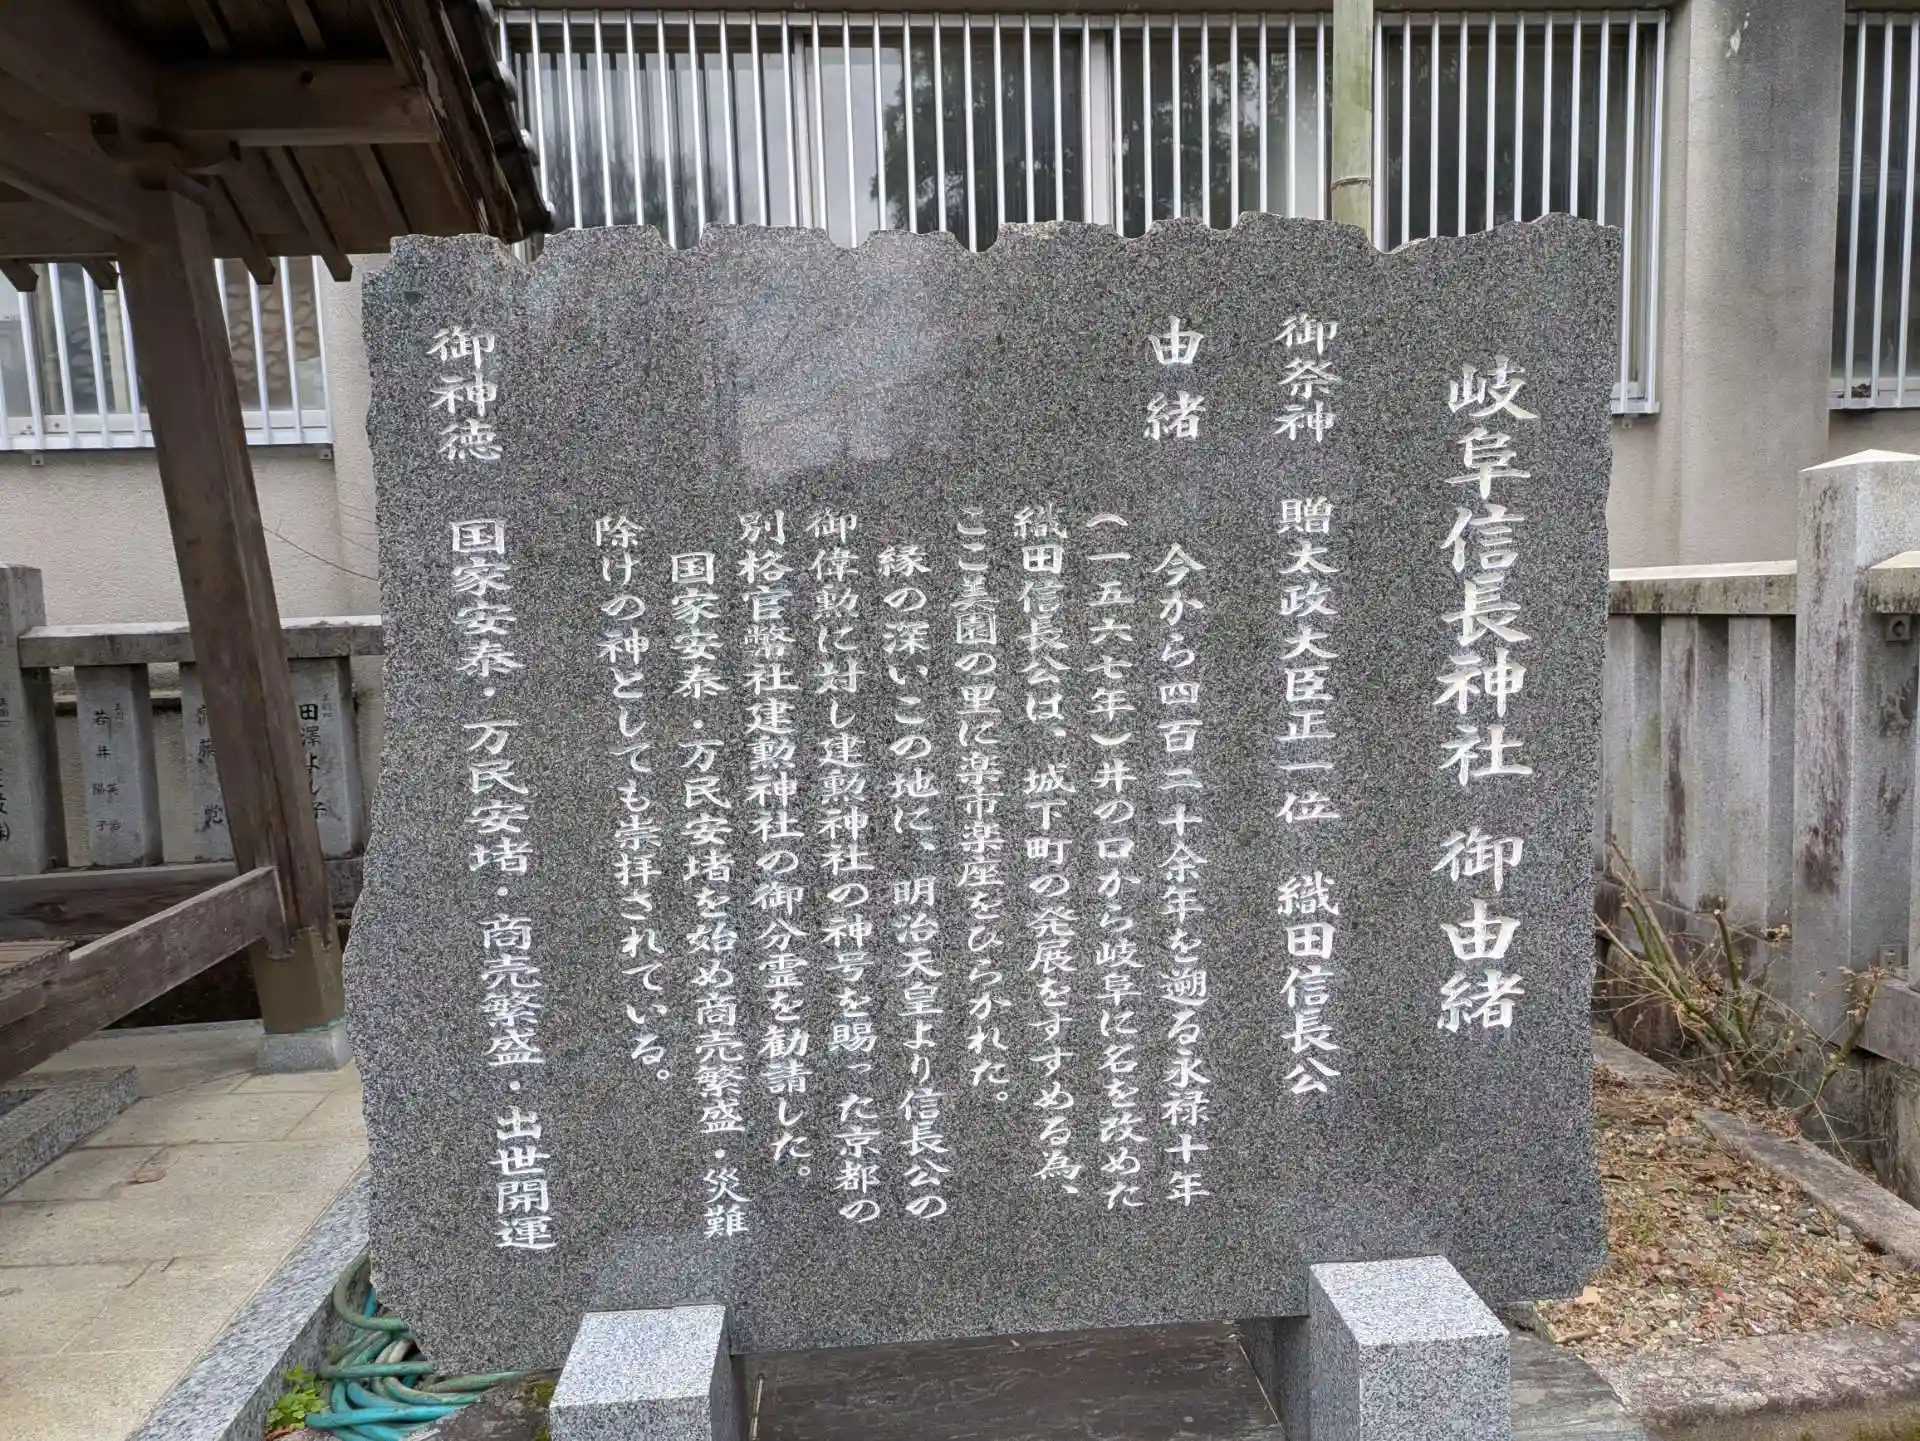 岐阜信長神社 御由緒
御祭神 贈太政大臣正一位 織田信長公
由緒
今から四百二十余年を遡る永禄十年
(一五六七年)井の口から岐阜に名を改めた
織田信長公は、城下町の発展をすすめる為、
ここ美園の里に楽市楽座をひらかれた。
縁の深いこの地に、明治天皇より信長公の
御偉勲に対し建勲神社の神号を賜った京都の
別格官幣社建勲神社の御分霊を勧請した。
国家安泰・万民安堵を始め商売繁盛・災難
除けの神としても崇拝されている。
御神徳 国家安泰・万民安堵・商売繁盛・出世開運
田澤よし子
若井